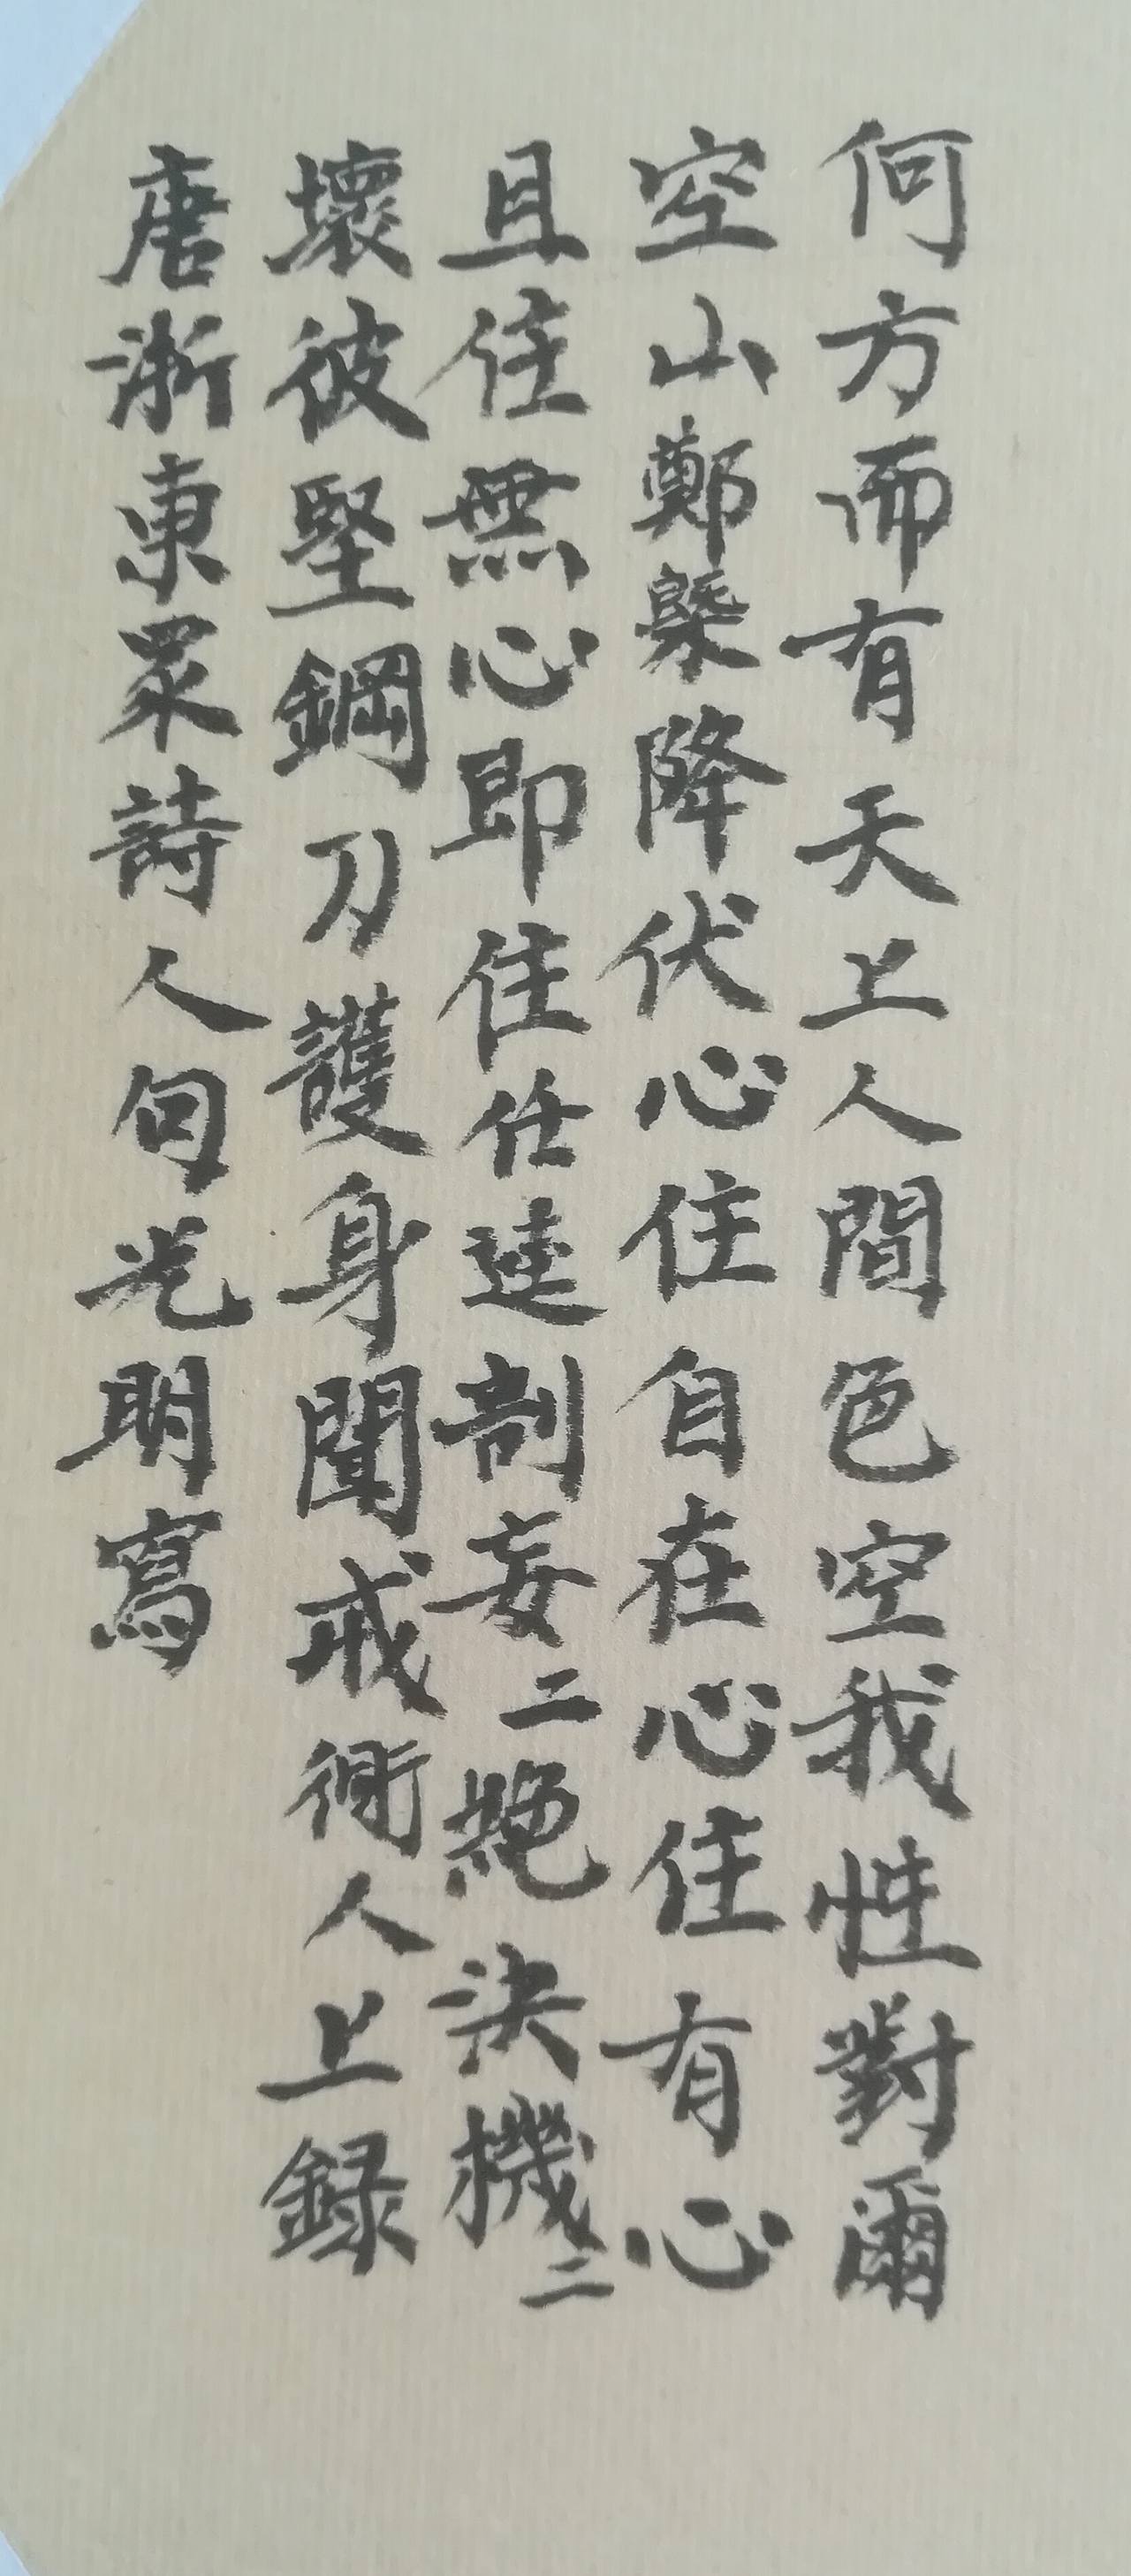 何方而有天上人間色空我性對爾
空山鄭槩降伏心住自在心住有心
且住無心即住任逵剖妄二絕決機二
壞彼堅鋼刀護身聞戒衕人上録
唐浙東眾詩人句光明寫